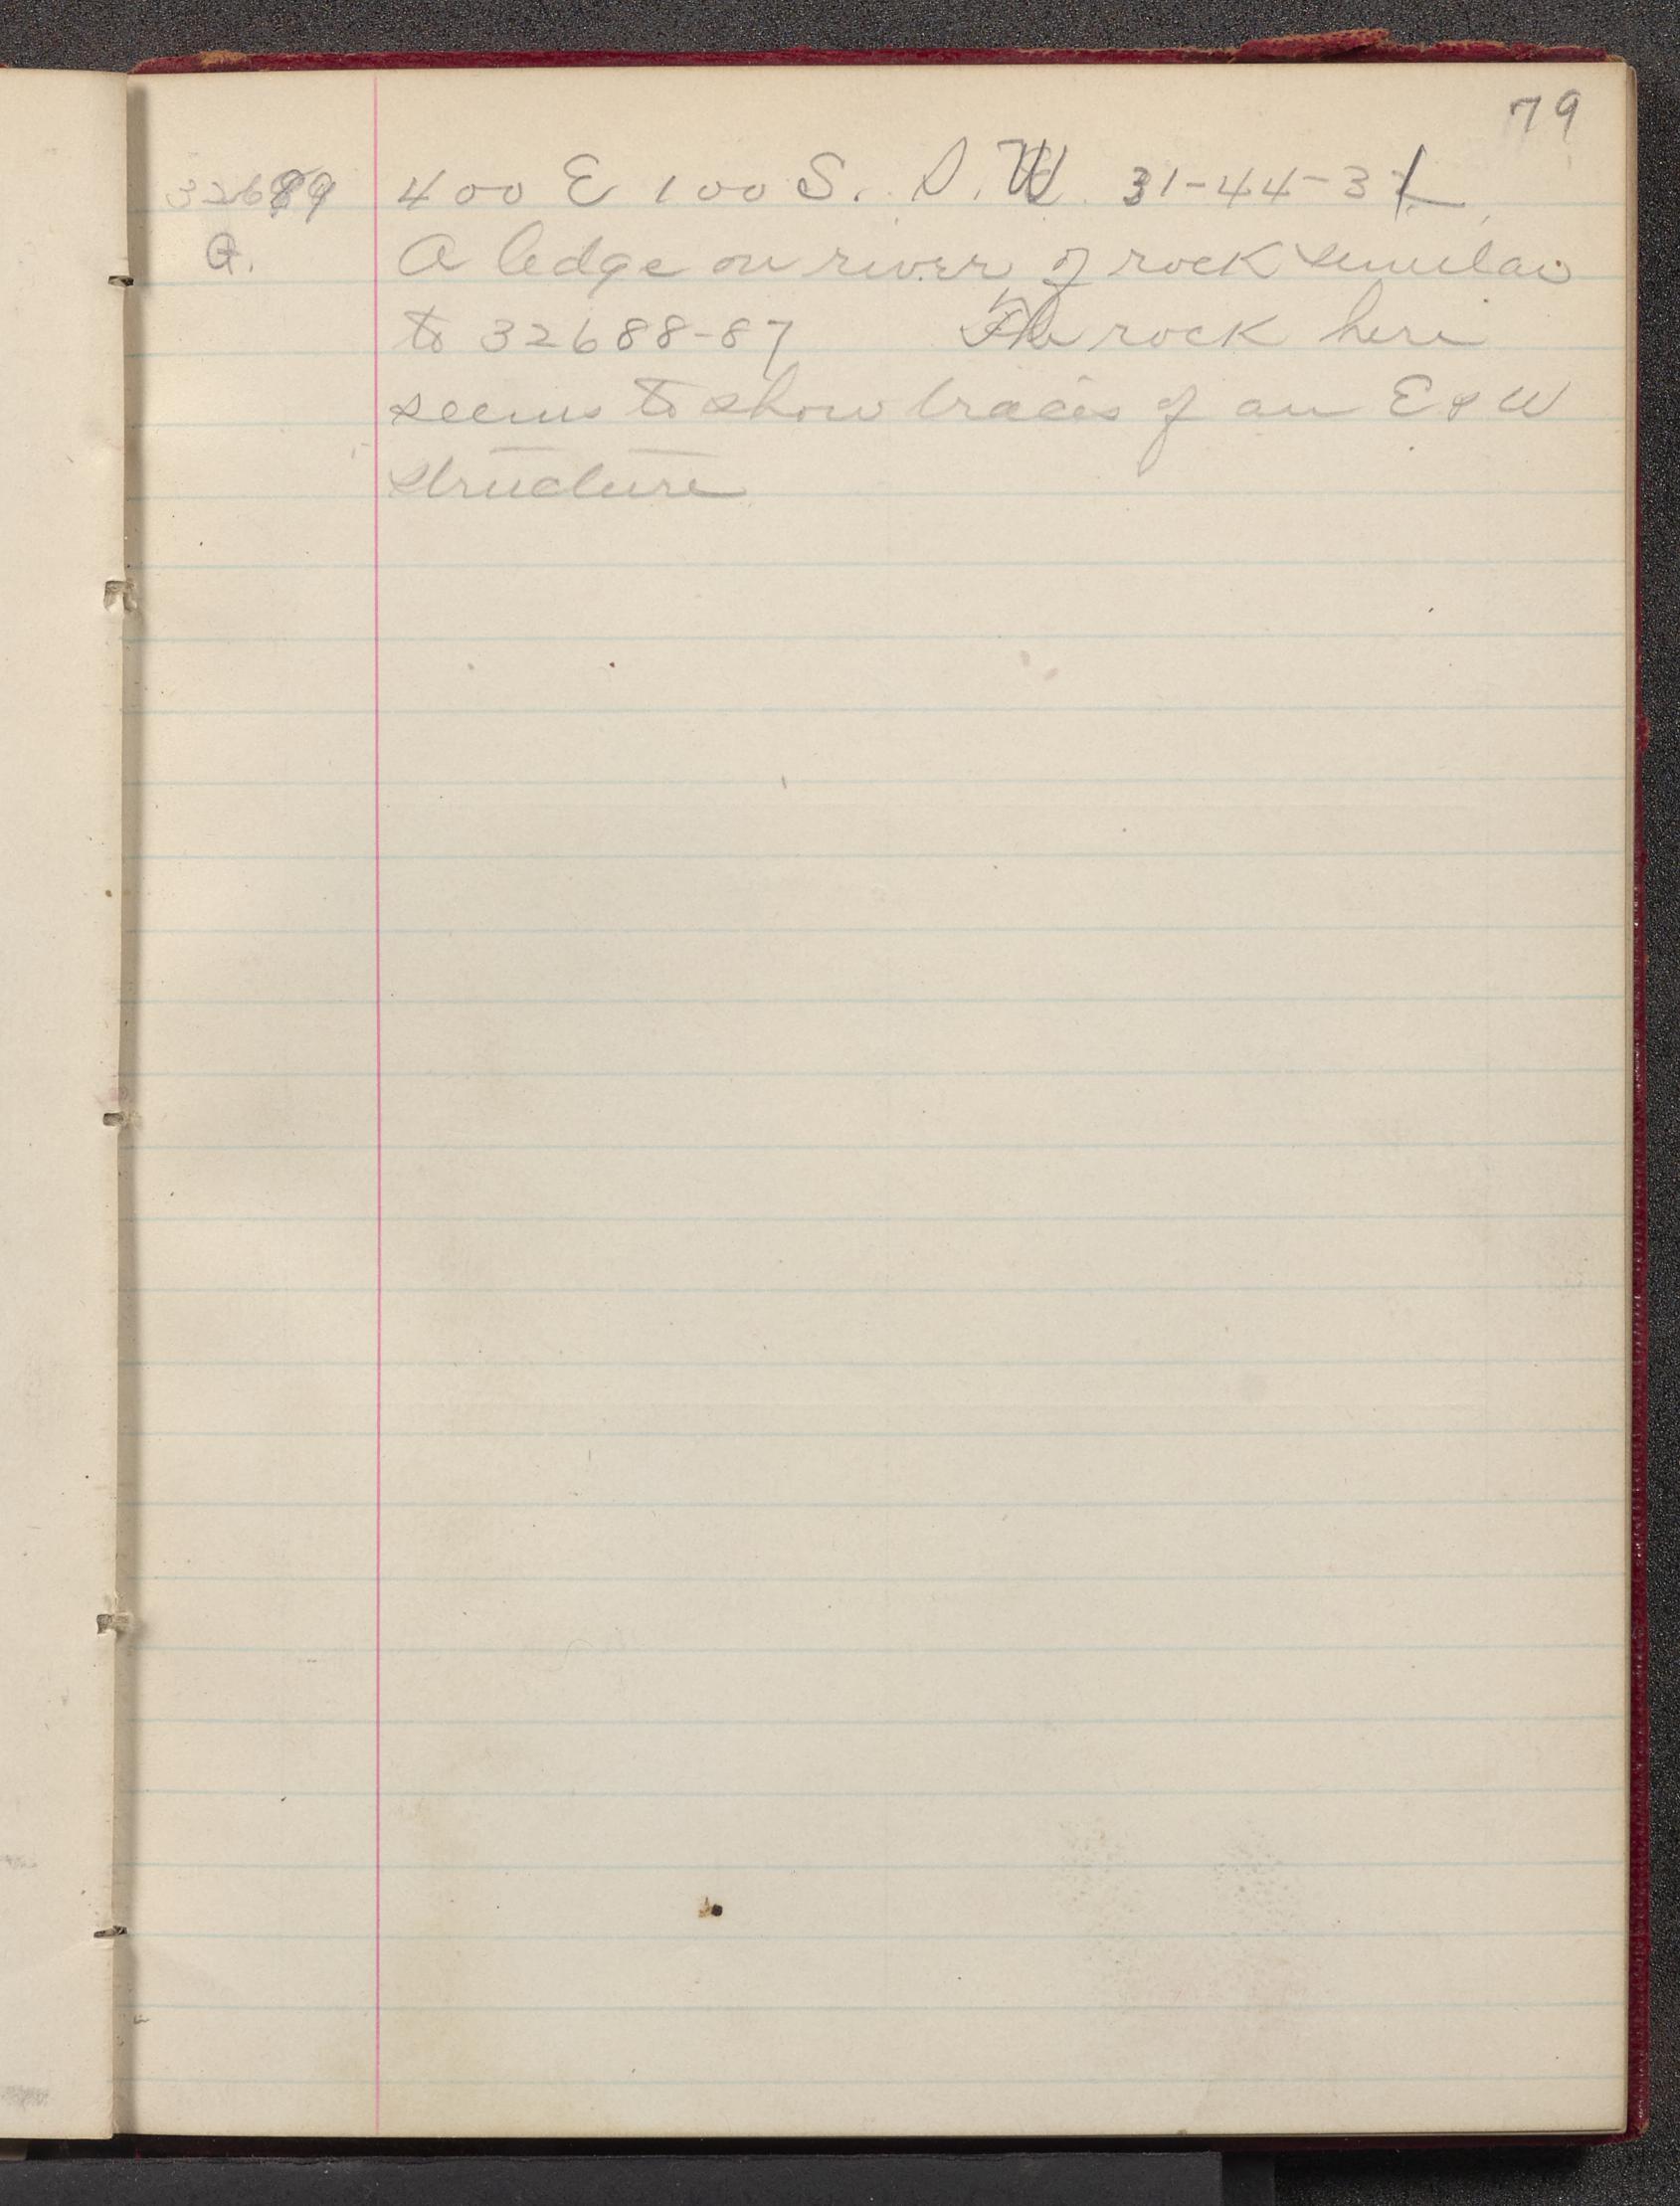 79
32689 400 E 100 S. S.W. 31-44-31
Q. A ledge on river of rock similar
to 32688-87 The rock here
seems to show traces of an E & W
structure